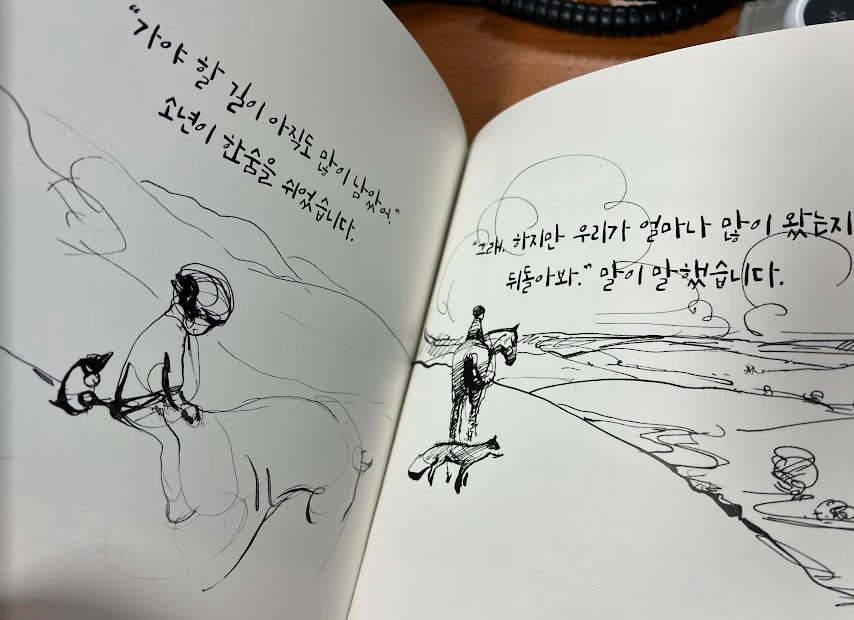 "가야 할 길이 아직도 많이 남았어."
소년이 한숨을 쉬었습니다.
"그래. 하지만 우리가 얼마나 많이 왔는지
뒤돌아봐." 말이 말했습니다.